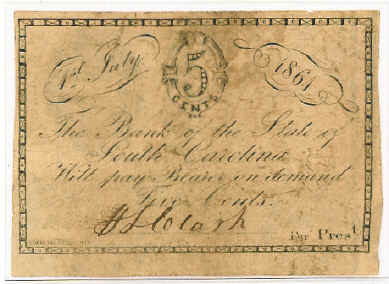 1st July
5
CENTS
1861
The Bank of the State of
South Carolina
Will pay Bearer on demand
Five Cents.
Clark
For Prest